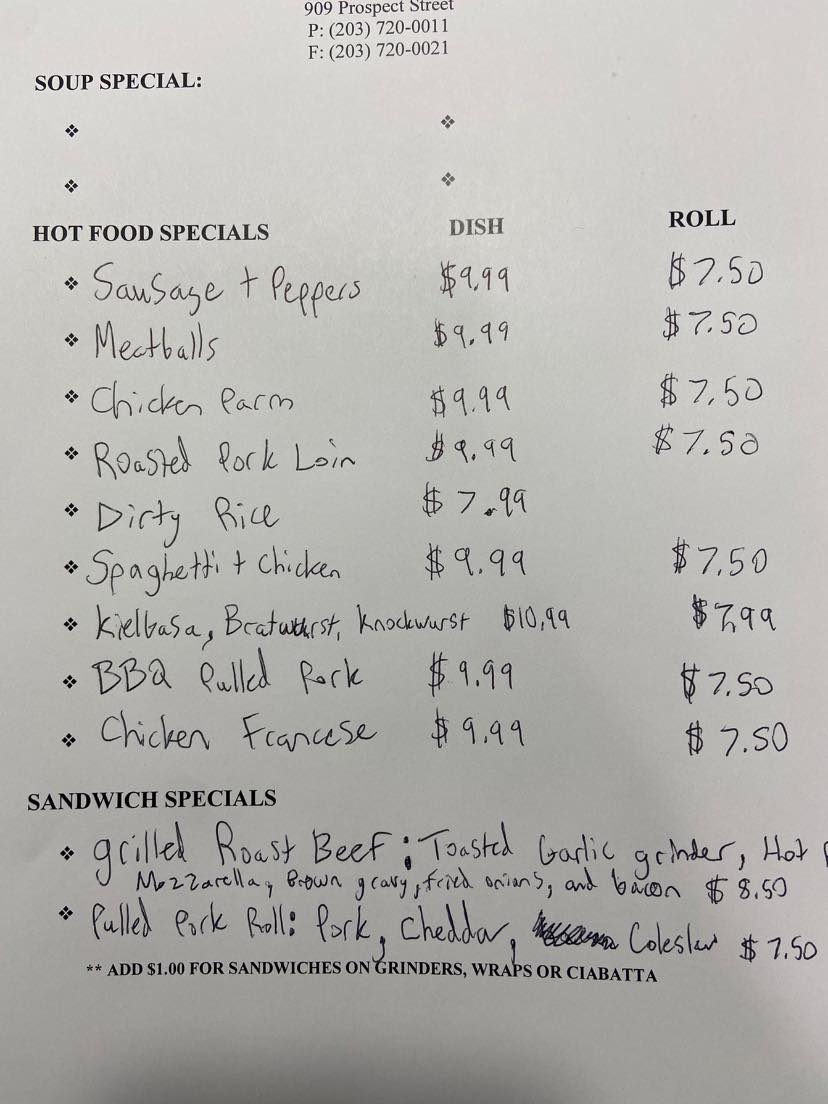 909 Prospect Street
P: (203) 720-0011
F: (203) 720-0021
SOUP SPECIAL:
HOT FOOD SPECIALS DISH ROLL
❖ Sausage + Peppers $9.99 $7.50
❖ Meatballs $9.99 $7.50
❖ Chicken Parm $9.99 $7.50
❖ Roasted Pork Loin $9.99 $7.50
❖ Dirty Rice $7.99
❖ Spaghetti + Chicken $9.99 $7.50
❖ Kielbasa, Bratwurst, Knockwurst $10.99 $7.99
❖ BBQ Pulled Pork $9.99 $7.50
❖ Chicken Francese $9.99 $7.50
SANDWICH SPECIALS
❖ grilled Roast Beef; Toasted Garlic grinder, Hot
Mozzarella, Brown gravy, fried onions, and bacon $8.50
❖ Pulled Pork Roll: Pork, Cheddar, Coleslaw $7.50
** ADD $1.00 FOR SANDWICHES ON GRINDERS, WRAPS OR CIABATTA